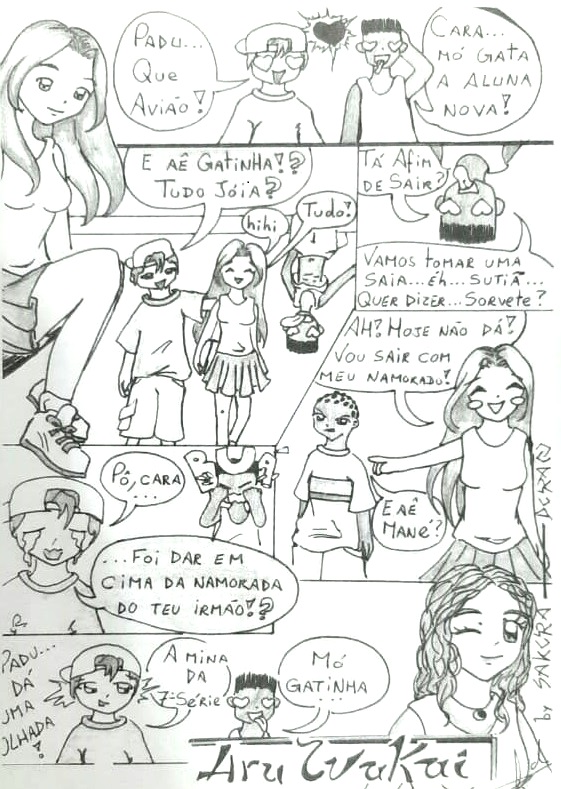 PADU...
QUE
AVIÃO!
CARA...
MÓ GATA
A ALUNA
NOVA!
E AÊ GATINHA!?
TUDO JÓIA?
hihi
TUDO!
TÁ AFIM
DE SAIR?
VAMOS TOMAR UMA
SAIA...ÉH...SUTIÃ...
QUER DIZER...SORVETE?
AH? HOJE NÃO DÁ?
VOU SAIR COM
MEU NAMORADU!
E AÊ
MANÉ?
PÔ, CARA
...
...FOI DAR EM
CIMA DA NAMORADA
DO TEU IRMÃO!?
PADU...
DÁ
UMA
OLHADA
!
A MINA
DA
7ª SÉRIE
MÓ
GATINHA
...
by SAKURA